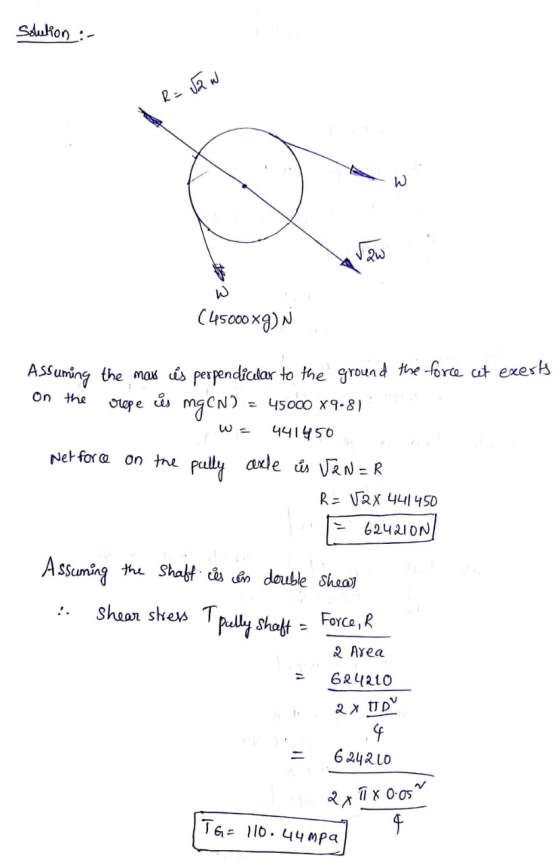 Solution :-
R = √2 W
W
√2W
W
(45000×g) N
Assuming the mass is perpendicular to the ground the force it exerts
on the rope is mg(N) = 45000 × 9.81
W = 441450
Net force on the pully axle is √2N = R
R = √2 × 441450
= 624210N
Assuming the shaft is in double shear
∴ Shear stress T pully shaft = Force, R
2 Area
= 624210
2 × πD²
4
= 624210
2 × π × 0.05²
4
TG = 110.44 mpa